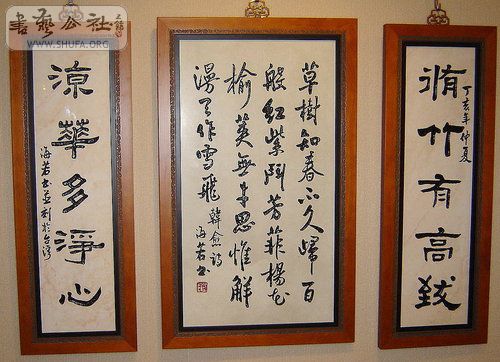 書藝公社
WWW.SHUFA.ORG
脩竹有高致
丁亥年仲夏
草樹知春不久歸百
般紅紫鬥芳菲楊花
榆莢無才思惟解
漫天作雪飛 韓愈詩
海若書
涼華多淨心
海若書並刻於台灣